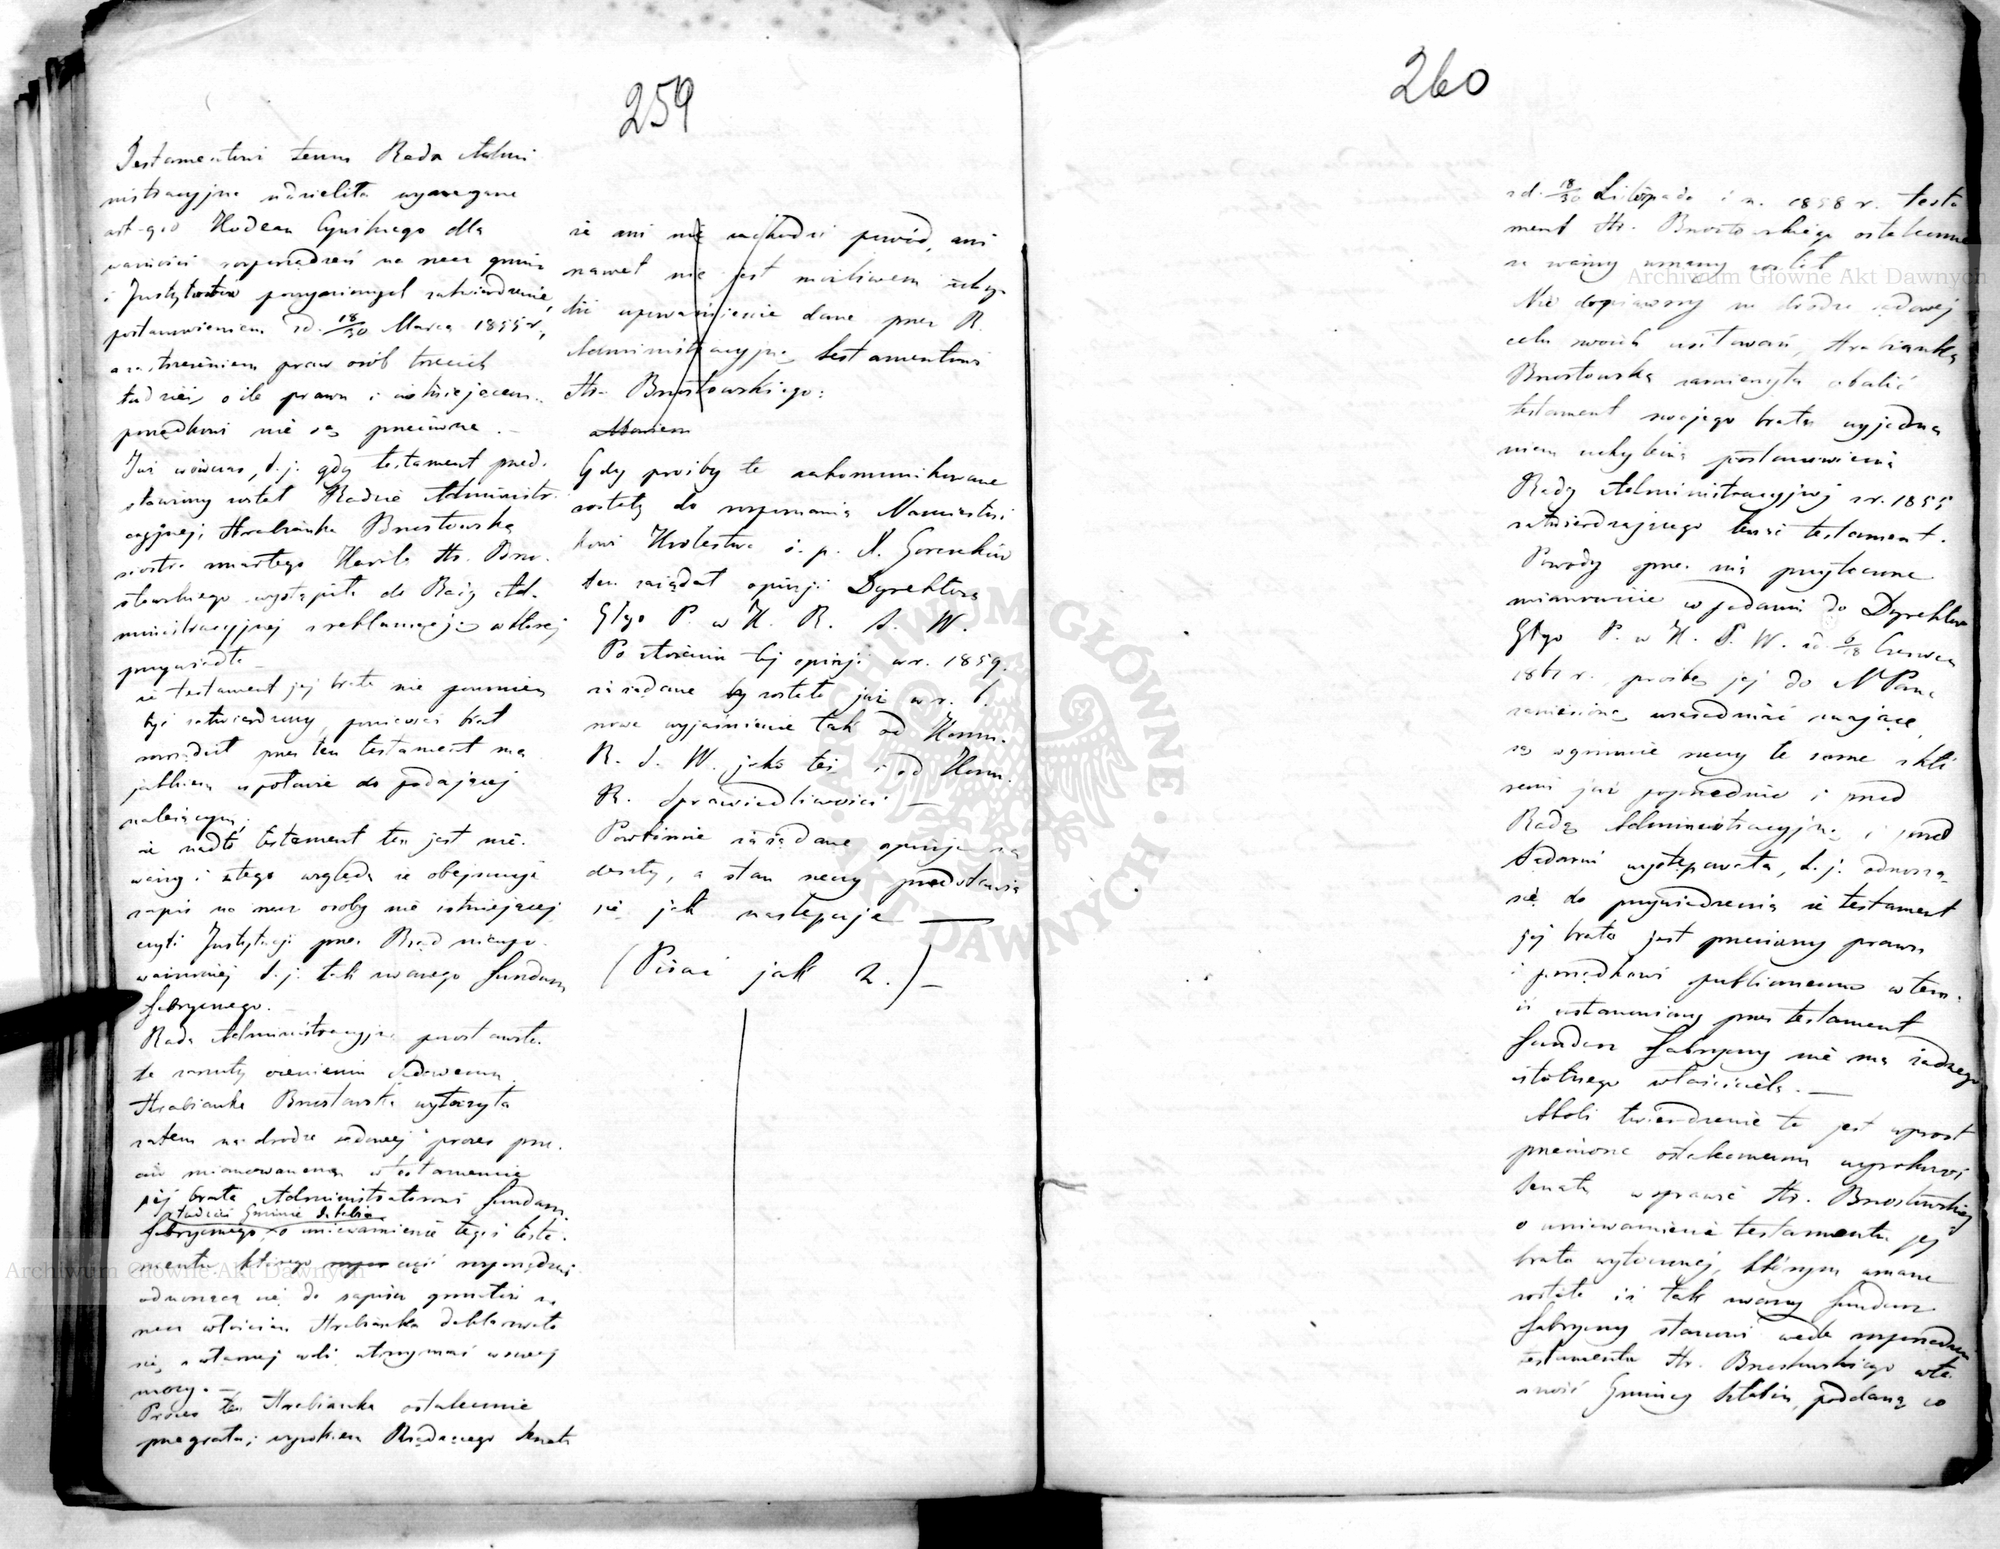 259
Testamentowi temu Rada Admi
nistracyjna udzieliła wymagane
art. 910 Kodexu Cywilnego dla
ważności rozporządzeń na rzecz gmin
i Instytutów poczynionych zatwierdzenie,
postanowieniem z d. 18/30 Marca 1855 r.,
zastrzeżeniem praw osób trzecich
tudzież, o ile prawu i istniejącem.
porządkowi nie są przeciwne. –
Już wówczas, t. j. gdy testament przed-
stawiony został Radzie Administr-
acyjnej, Hrabianka Brzostowska
siostra zmarłego Karola Hr. Brzo-
stowskiego wystąpiła do Rady Ad-
ministracyjnej z reklamacją w której
przywiodła –
że testament jej brata nie powinien
być zatwierdzony, ponieważ brat
rozrządził przez ten testament ma
jątkiem w połowie do podającej
należącym;
że nadto testament ten jest nie-
ważny i z tego względu że obejmuje
zapis na rzecz osoby nie istniejącej
czyli Instytucji przez Rząd nieupo-
ważnionej t. j. tak zwanego funduszu
fabrycznego. –
Rada Administracyjna pozostawiła
te zarzuty ocenieniu Sądowemu.
Hrabianka Brzostowska wytoczyła
zatem na drodze sądowej proces prze-
ciw mianowanemu w testamencie
jej brata Administratorowi fundusz.
i tudzież Gminie Sztabin
fabrycznego, o unieważnienie tegoż testa-
mentu którego część rozporządzeń
odnoszącą się do zapisu gruntów na
rzecz włościan Hrabianka deklarowała
się z własnej woli utrzymać w swej
mocy. –
Proces ten Hrabianka ostatecznie
przegrała; wyrokiem Rządzącego Senatu
że ani nie zachodzi powód, ani
nawet nie jest możliwem uchy-
lić upoważnienie dane przez R.
Administracyjną testamentowi
Hr. Brzostowskiego:
Gdy prośby te zakomunikowane
zostały do rozpoznania Namiestni
kowi Królestwa ś. p. X. Gorczakow
ten zażądał opinji Dyrektora
Głgo P. w K. R. S. W.
Po złożeniu tej opinji w r. 1859.
zażądane by zostało już w r. b.
nowe wyjaśnienie tak od Komm.
R. S. W. jako też i od Komm.
R. Sprawiedliwości –
Powtórnie zażądane opinje na
deszły, a stan rzeczy przedstawia
się jak następuje –
(Pisać jak 2.) –
260
z d. 18/30 Listopada i n. 1858 r. testa
ment Hr. Brzostowskiego ostatecznie
za ważny uznany został
Nie dopiąwszy na drodze sądowej
celu swoich usiłowań, Hrabianka
Brzostowska zamierzyła obalić
testament swojego brata wyjedna
niem uchylenia postanowienia
Rady Administracyjnej z r. 1855
zatwierdzającego tenże testament.
Powody przez nią przytoczone
mianowicie w podaniu do Dyrektora
Głgo P. w K. S. W. z d. 6/18 Czerwca
1861 r., prośbę jej do N Pana
zaniesioną uzasadniać mające,
są w gruncie rzeczy te same z któ
remi już poprzednio i przed
Radą Administracyjną i przed
Sądami występowała, t. j. odnoszą
się do przywiedzenia że testament
jej brata jest przeciwny prawu
i porządkowi publicznemu w tem
iż ustanowiony przez testament
fundusz fabryczny nie ma żadnego
istotnego właściciela. –
Atoli twierdzenie to jest wprost
przeciwne ostatecznemu wyrokowi
Senatu w sprawie Hr. Brzostowskiej
o unieważnienie testamentu jej
brata wytoczonej, którym uznane
zostało iż tak zwany fundusz
fabryczny stanowi wedle rozporządzeń
testamentu Hr. Brzostowskiego wła
sność Gminy Sztabin, poddaną co